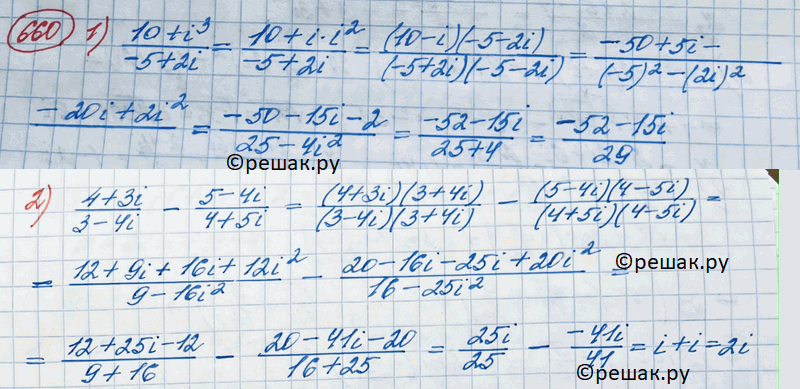 660 1) (10+i³)/(-5+2i) = (10+i·i²)/(-5+2i) = ((10-i)(-5-2i))/((-5+2i)(-5-2i)) = (-50+5i-)/((-5)²-(2i)²)
(-20i+2i²)/ = (-50-15i-2)/(25-4i²) = (-52-15i)/(25+4) = (-52-15i)/29
©решак.ру
2) (4+3i)/(3-4i) - (5-4i)/(4+5i) = ((4+3i)(3+4i))/((3-4i)(3+4i)) - ((5-4i)(4-5i))/((4+5i)(4-5i)) =
= (12+9i+16i+12i²)/(9-16i²) - (20-16i-25i+20i²)/(16-25i²) =
©решак.ру
= (12+25i-12)/(9+16) - (20-41i-20)/(16+25) = 25i/25 - (-41i)/41 = i+i=2i
©решак.ру